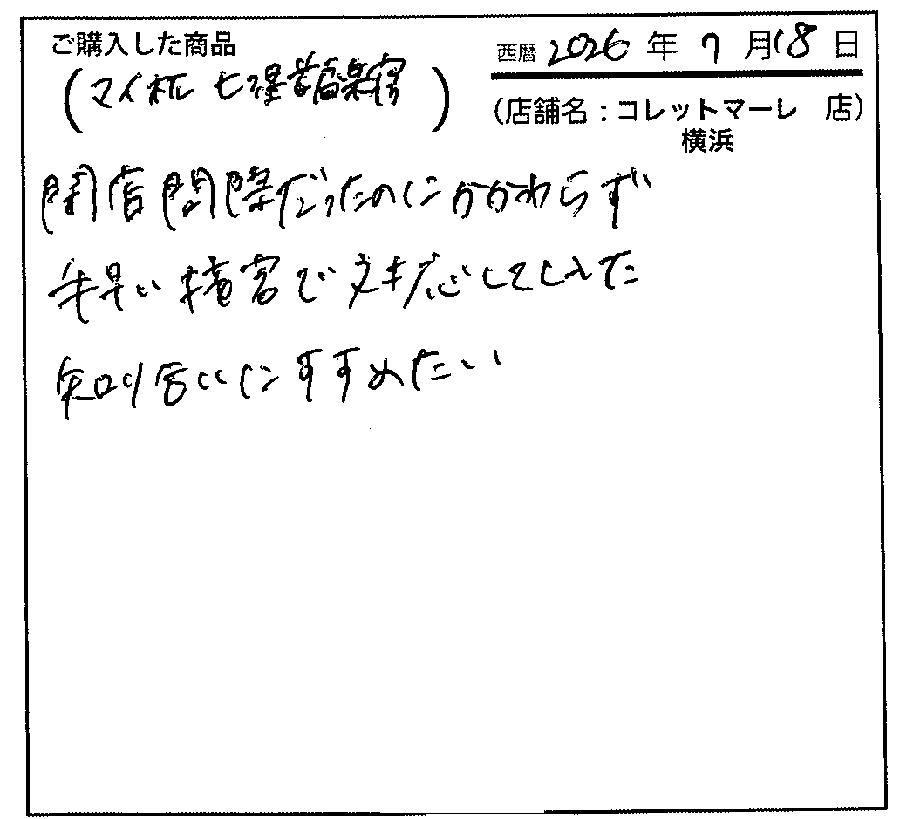 ご購入した商品
西暦 2026 年 7 月 18 日
(マイ枕 七理)
(店舗名：コレットマーレ 店)
横浜
閉店間際だったのにかかわらず
手早い接客で対応してくれた
知り合いにすすめたい